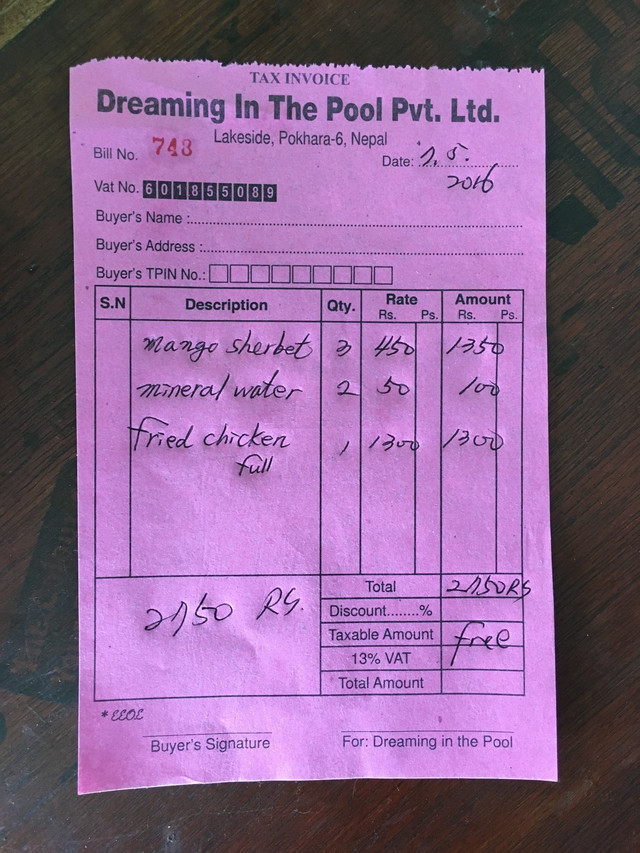 TAX INVOICE
Dreaming In The Pool Pvt. Ltd.
Lakeside, Pokhara-6, Nepal
Bill No. 743 Date: 1.5.
2016
Vat No. 601855089
Buyer's Name :
Buyer's Address :
Buyer's TPIN No.:
S.N Description Qty. Rate Amount
Rs. Ps. Rs. Ps.
mango sherbet 3 450 1350
mineral water 2 50 100
fried chicken 1 1300 1300
full
Total 2750RS
2750 RS.
Discount........%
Taxable Amount free
13% VAT
Total Amount
* EEOE
Buyer's Signature For: Dreaming in the Pool